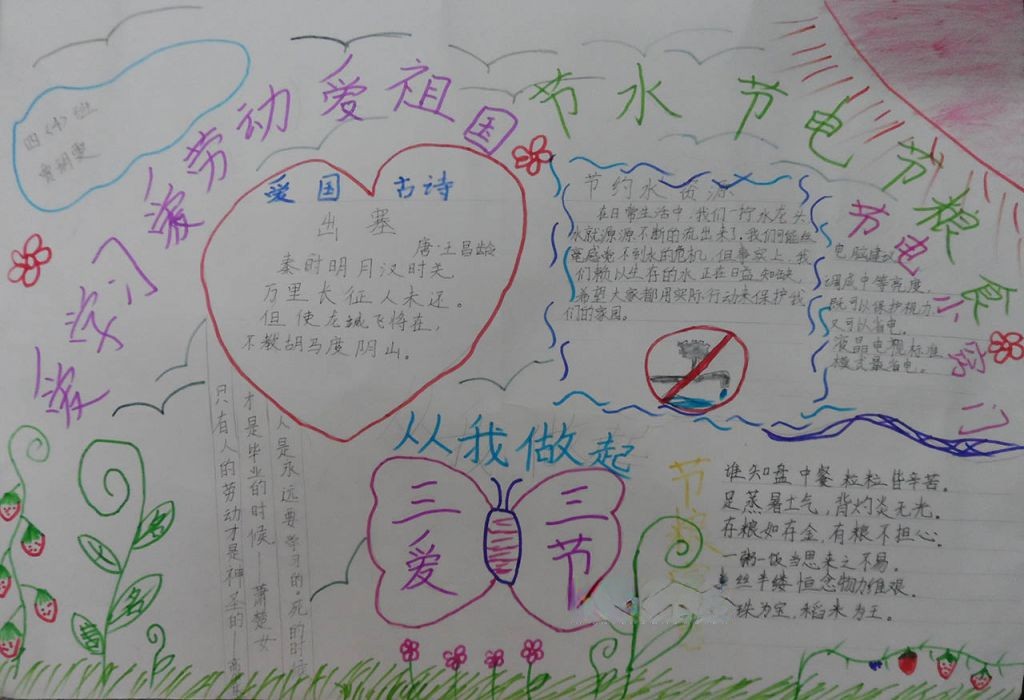 四(4)班
爱学习爱劳动爱祖国
节水节电节粮食
爱国 古诗
出塞
唐·王昌龄
秦时明月汉时关
万里长征人未还。
但使龙城飞将在,
不教胡马度阴山。
节约水资源
在日常生活中,我们一拧水龙头
水就源源不断的流出来了,我们可能丝
毫感觉不到水的危机,但事实上,我
们赖以生存的水正在日益短缺,
希望大家都用实际行动来保护我
们的家园。
节电小窍门
电脑建议
调成中等亮度,
既可以保护视力,
又可以省电。
液晶电视标准
模式最省电。
人是永远要学习的。死的时候
才是毕业的时候—萧楚女
只有人的劳动才是神圣的—高
从我做起
三爱
三节
谁知盘中餐 粒粒皆辛苦。
足蒸暑土气,背灼炎天光。
存粮如存金,有粮不担心。
一粥一饭当思来之不易。
丝半缕恒念物力维艰。
珠为宝,稻米为王。